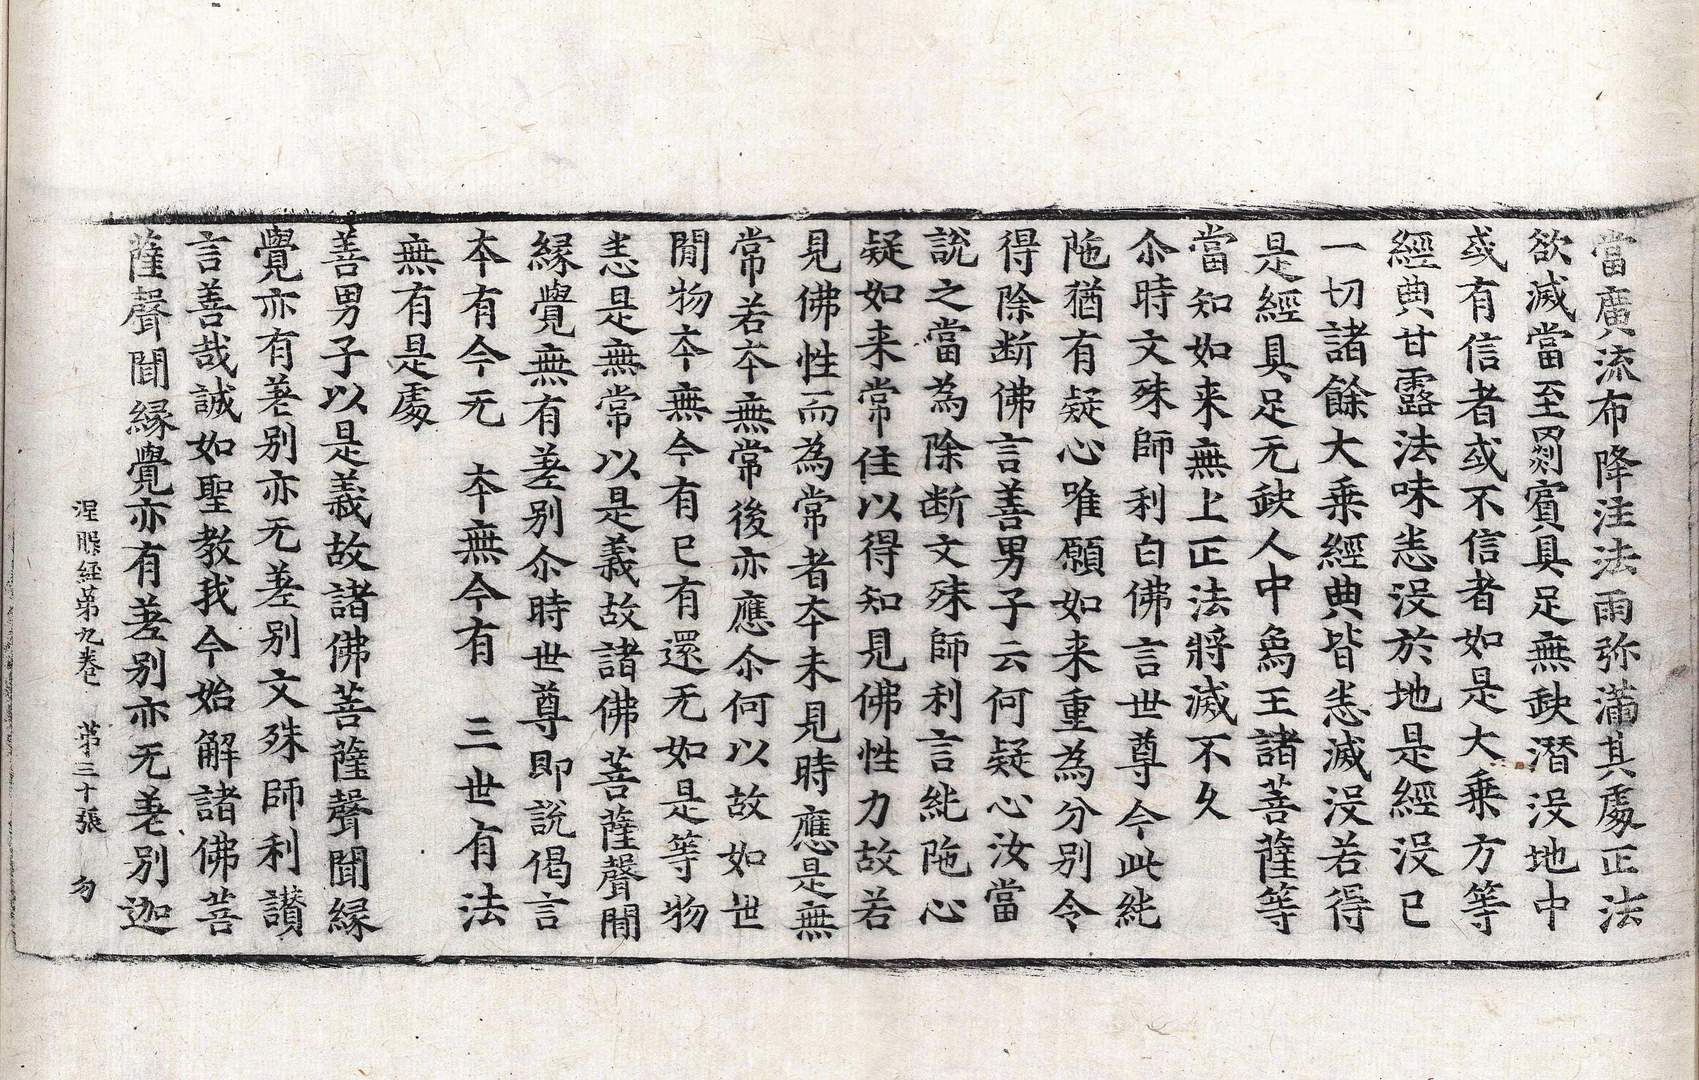 當廣流布降注法雨弥滿其處正法
欲滅當至罽賓具足無缺潛没地中
或有信者或不信者如是大乘方等
經典甘露法味悉没於地是經没已
一切諸餘大乘經典皆悉滅没若得
是經具足无缺人中象王諸菩薩等
當知如来無上正法將滅不久
尒時文殊師利白佛言世尊今此純
陁猶有疑心唯願如来重為分別令
得除断佛言善男子云何疑心汝當
說之當為除断文殊師利言純陁心
疑如来常住以得知見佛性力故若
見佛性而為常者夲未見時應是無
常若夲無常後亦應尒何以故如世
間物夲無今有已有還无如是等物
悉是無常以是義故諸佛菩薩聲聞
緣覺無有差别尒時世尊即說偈言
夲有今无　夲無今有　三世有法
無有是處
善男子以是義故諸佛菩薩聲聞緣
覺亦有差别亦无差别文殊師利讃
言善哉誠如聖教我今始解諸佛菩
薩聲聞緣覺亦有差别亦无差别迦
涅槃経第九卷　第三十張　匆